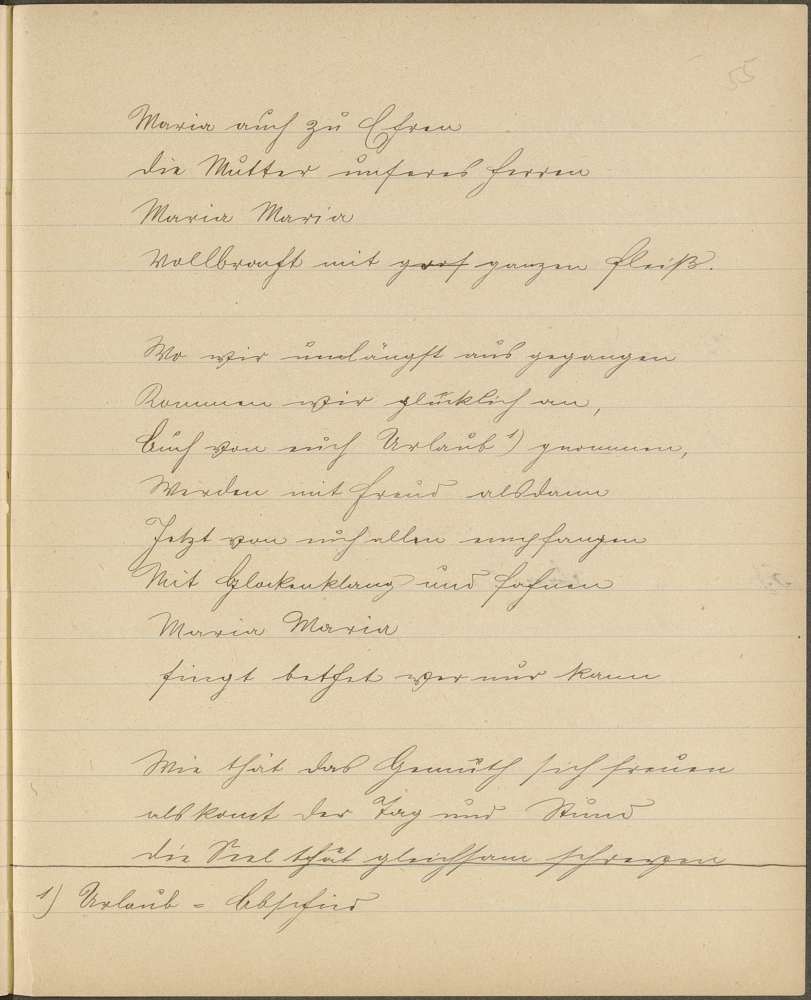 55
Maria auch zu Ehren
die Mutter unseres Herren
Maria Maria
Vollbracht mit gros ganzen Fleiß.
Wo wir unlängst aus gegangen
Kommen wir glücklich an,
Auch von euch Urlaub 1) genommen,
Werden mit Freud alsdann
Jetzt von euch allen empfangen
Mit Glockenklang und Fahnen
Maria Maria
singt bethet wer nur kann
Wie thät das Gemüth sich freuen
als komt der Tag und Stund
die Seel thät gleichsam schreyen
1) Urlaub = Abschied